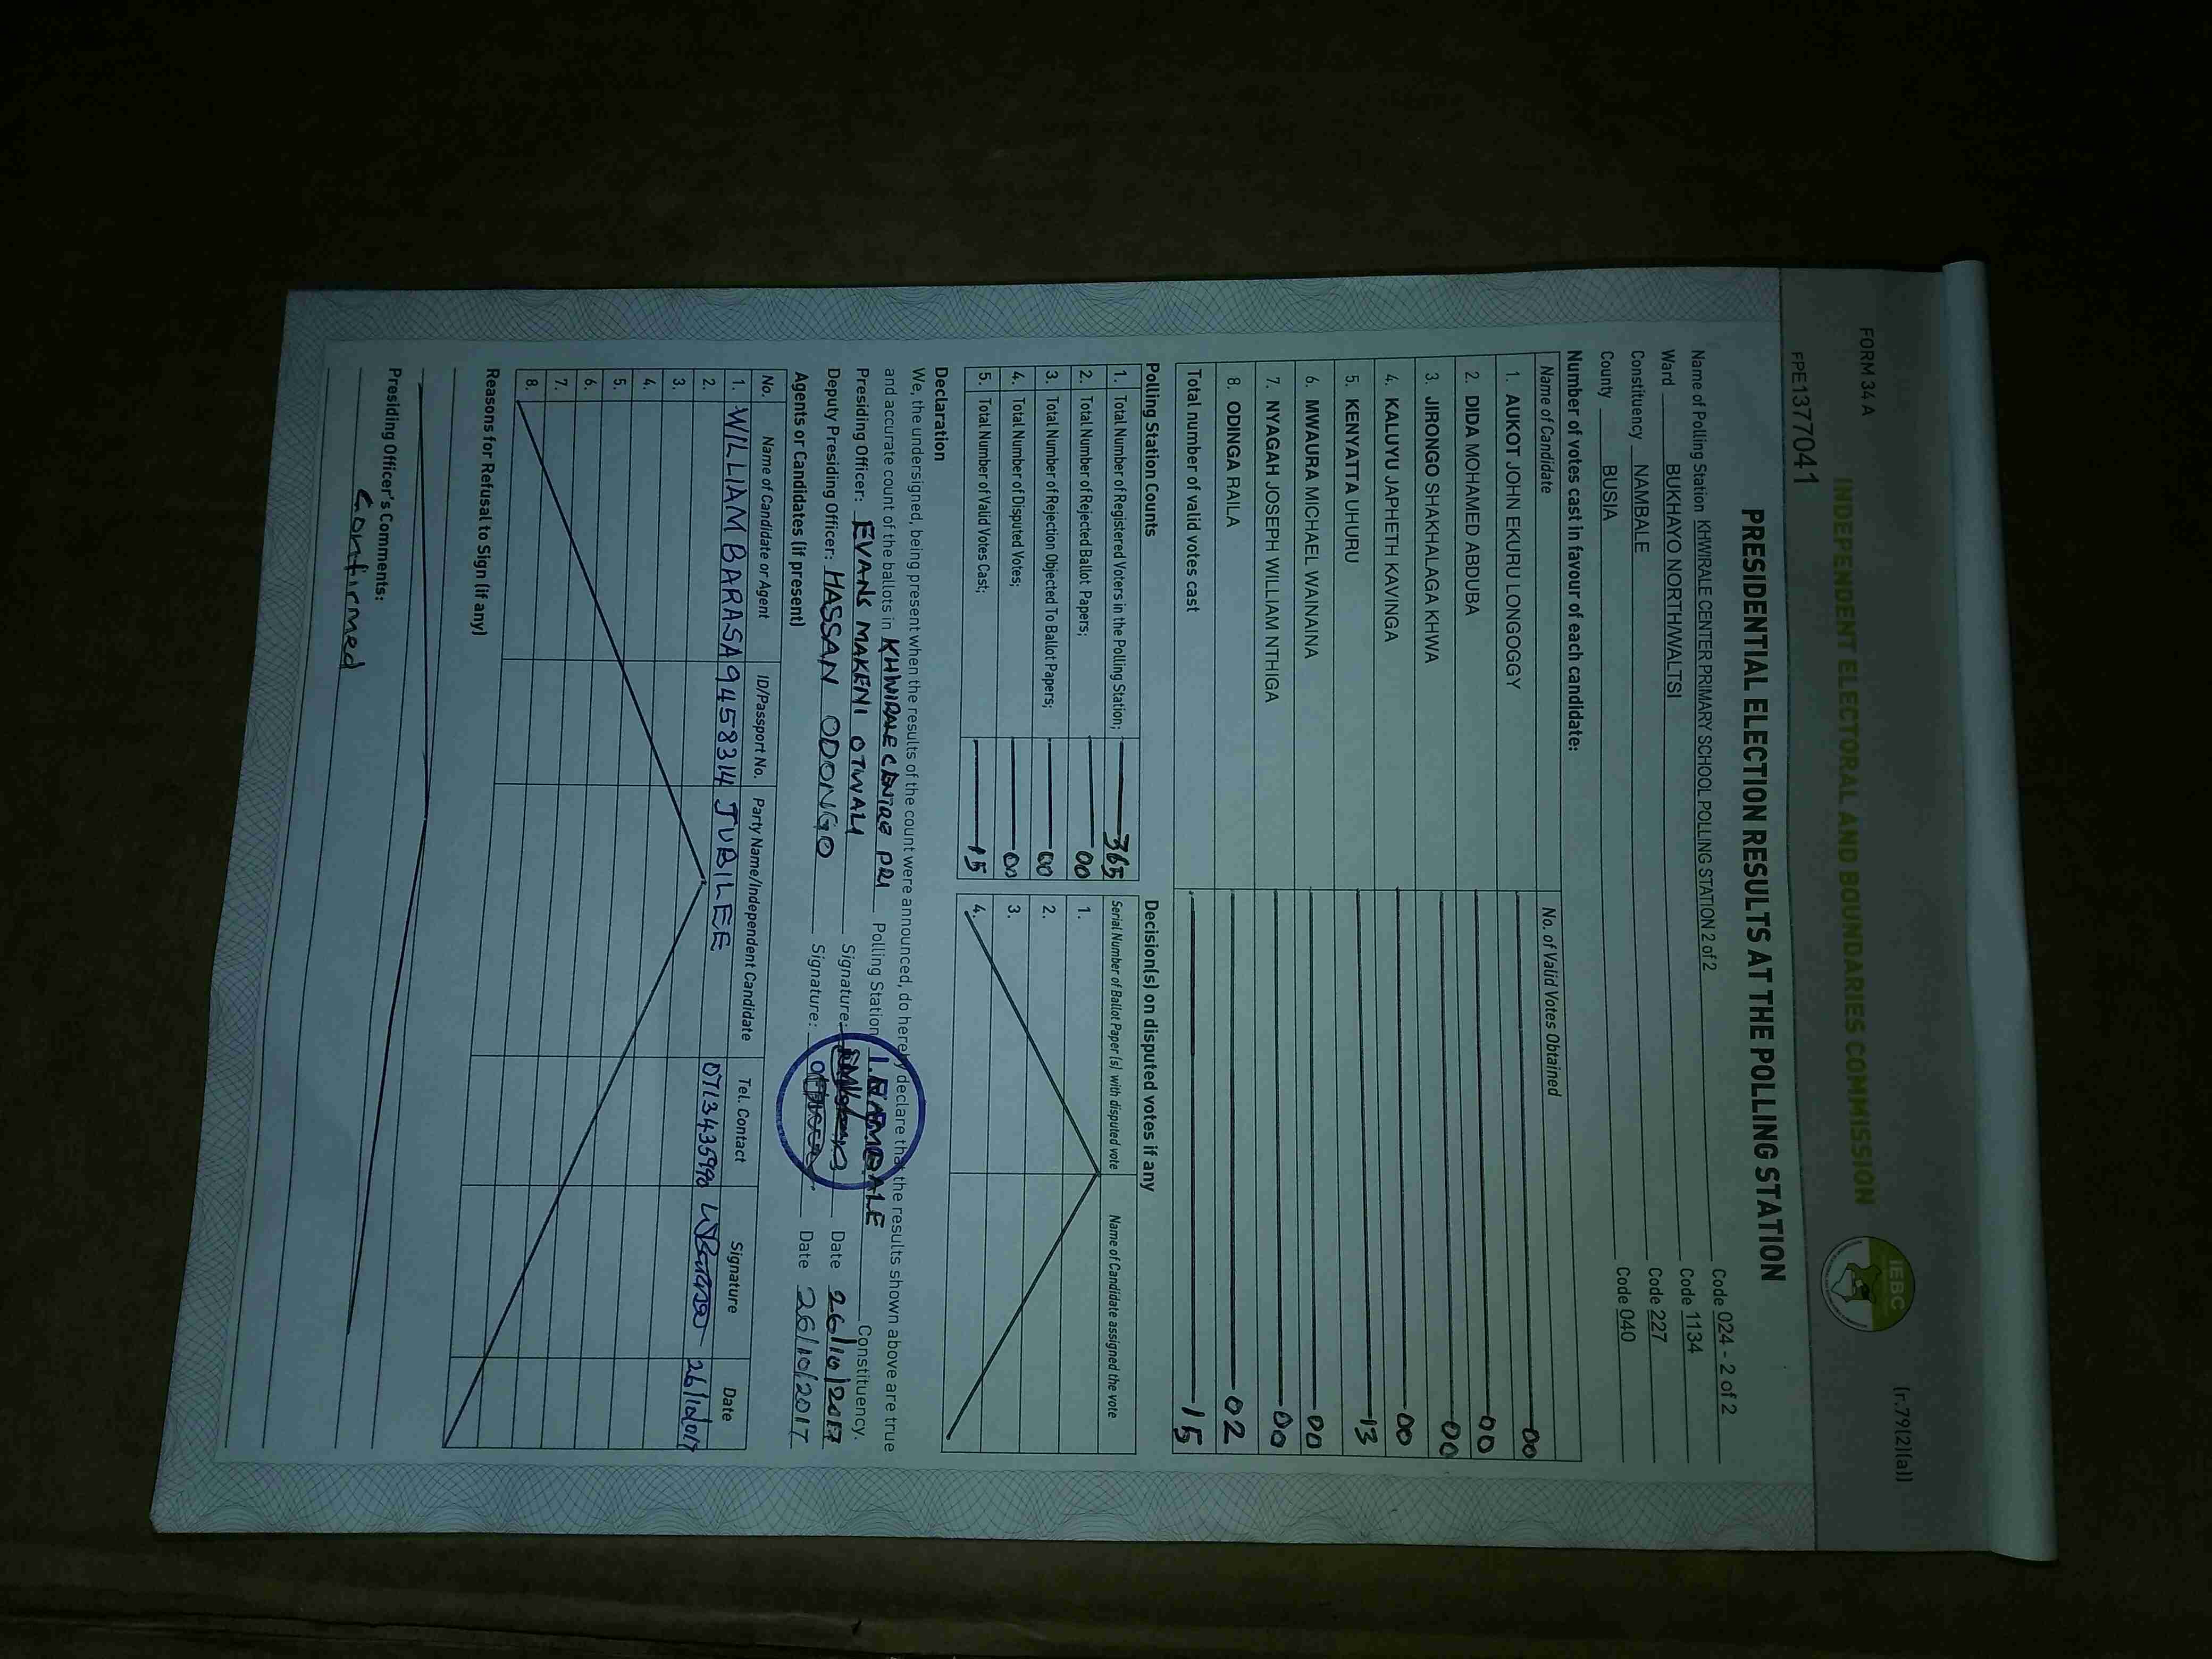 FORM 34 A
(r.79(2)(a))
INDEPENDENT ELECTORAL AND BOUNDARIES COMMISSION
IEBC
FPE1377041
PRESIDENTIAL ELECTION RESULTS AT THE POLLING STATION
Name of Polling Station KHWIRALE CENTER PRIMARY SCHOOL POLLING STATION 2 of 2 Code 024 - 2 of 2
Ward BUKHAYO NORTH/WALTSI Code 1134
Constituency NAMBALE Code 227
County BUSIA Code 040
Number of votes cast in favour of each candidate:
Name of Candidate No. of Valid Votes Obtained
1. AUKOT JOHN EKURU LONGOGGY 00
2. DIDA MOHAMED ABDUBA 00
3. JIRONGO SHAKHALAGA KHWA 00
4. KALUYU JAPHETH KAVINGA 00
5. KENYATTA UHURU 13
6. MWAURA MICHAEL WAINAINA 00
7. NYAGAH JOSEPH WILLIAM NTHIGA 00
8. ODINGA RAILA 02
Total number of valid votes cast 15
Polling Station Counts
1. Total Number of Registered Voters in the Polling Station; 365
2. Total Number of Rejected Ballot Papers; 00
3. Total Number of Rejection Objected To Ballot Papers; 00
4. Total Number of Disputed Votes; 00
5. Total Number of Valid Votes Cast; 15
Decision(s) on disputed votes if any
Serial Number of Ballot Paper(s) with disputed vote Name of Candidate assigned the vote
1.
2.
3.
4.
Declaration
We, the undersigned, being present when the results of the count were announced, do hereby declare that the results shown above are true
and accurate count of the ballots in KHWIRALE CENTRE PRI Polling Station Constituency.
Presiding Officer: EVANS MAKENI Signature: Date 26/10/2017
Deputy Presiding Officer: HASSAN ODONGO Signature: Date 26/10/2017
Agents or Candidates (if present)
No. Name of Candidate or Agent ID/Passport No. Party Name/Independent Candidate Tel. Contact Signature Date
1. WILLIAM BARASA 9458314 JUBILEE
2.
3.
4.
5.
6.
7.
8.
Reasons for Refusal to Sign (if any)
Presiding Officer's Comments:
Confirmed